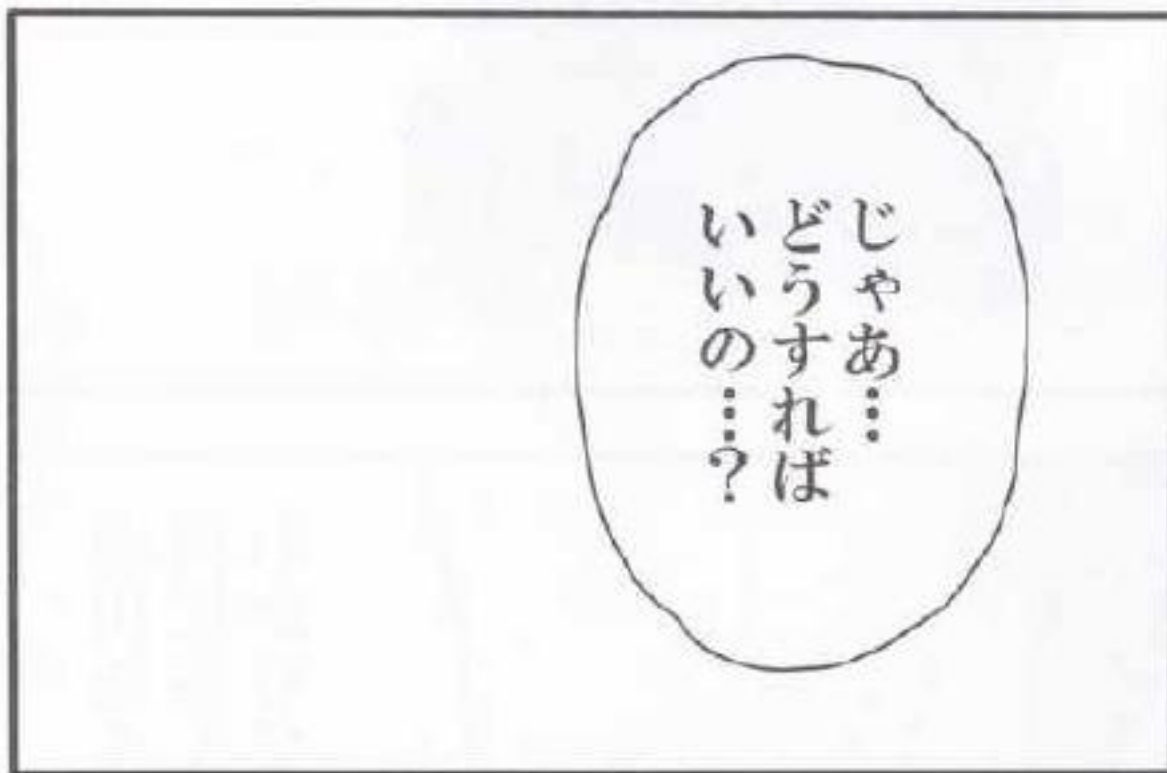 じゃあ…
どうすれば
いいの…?